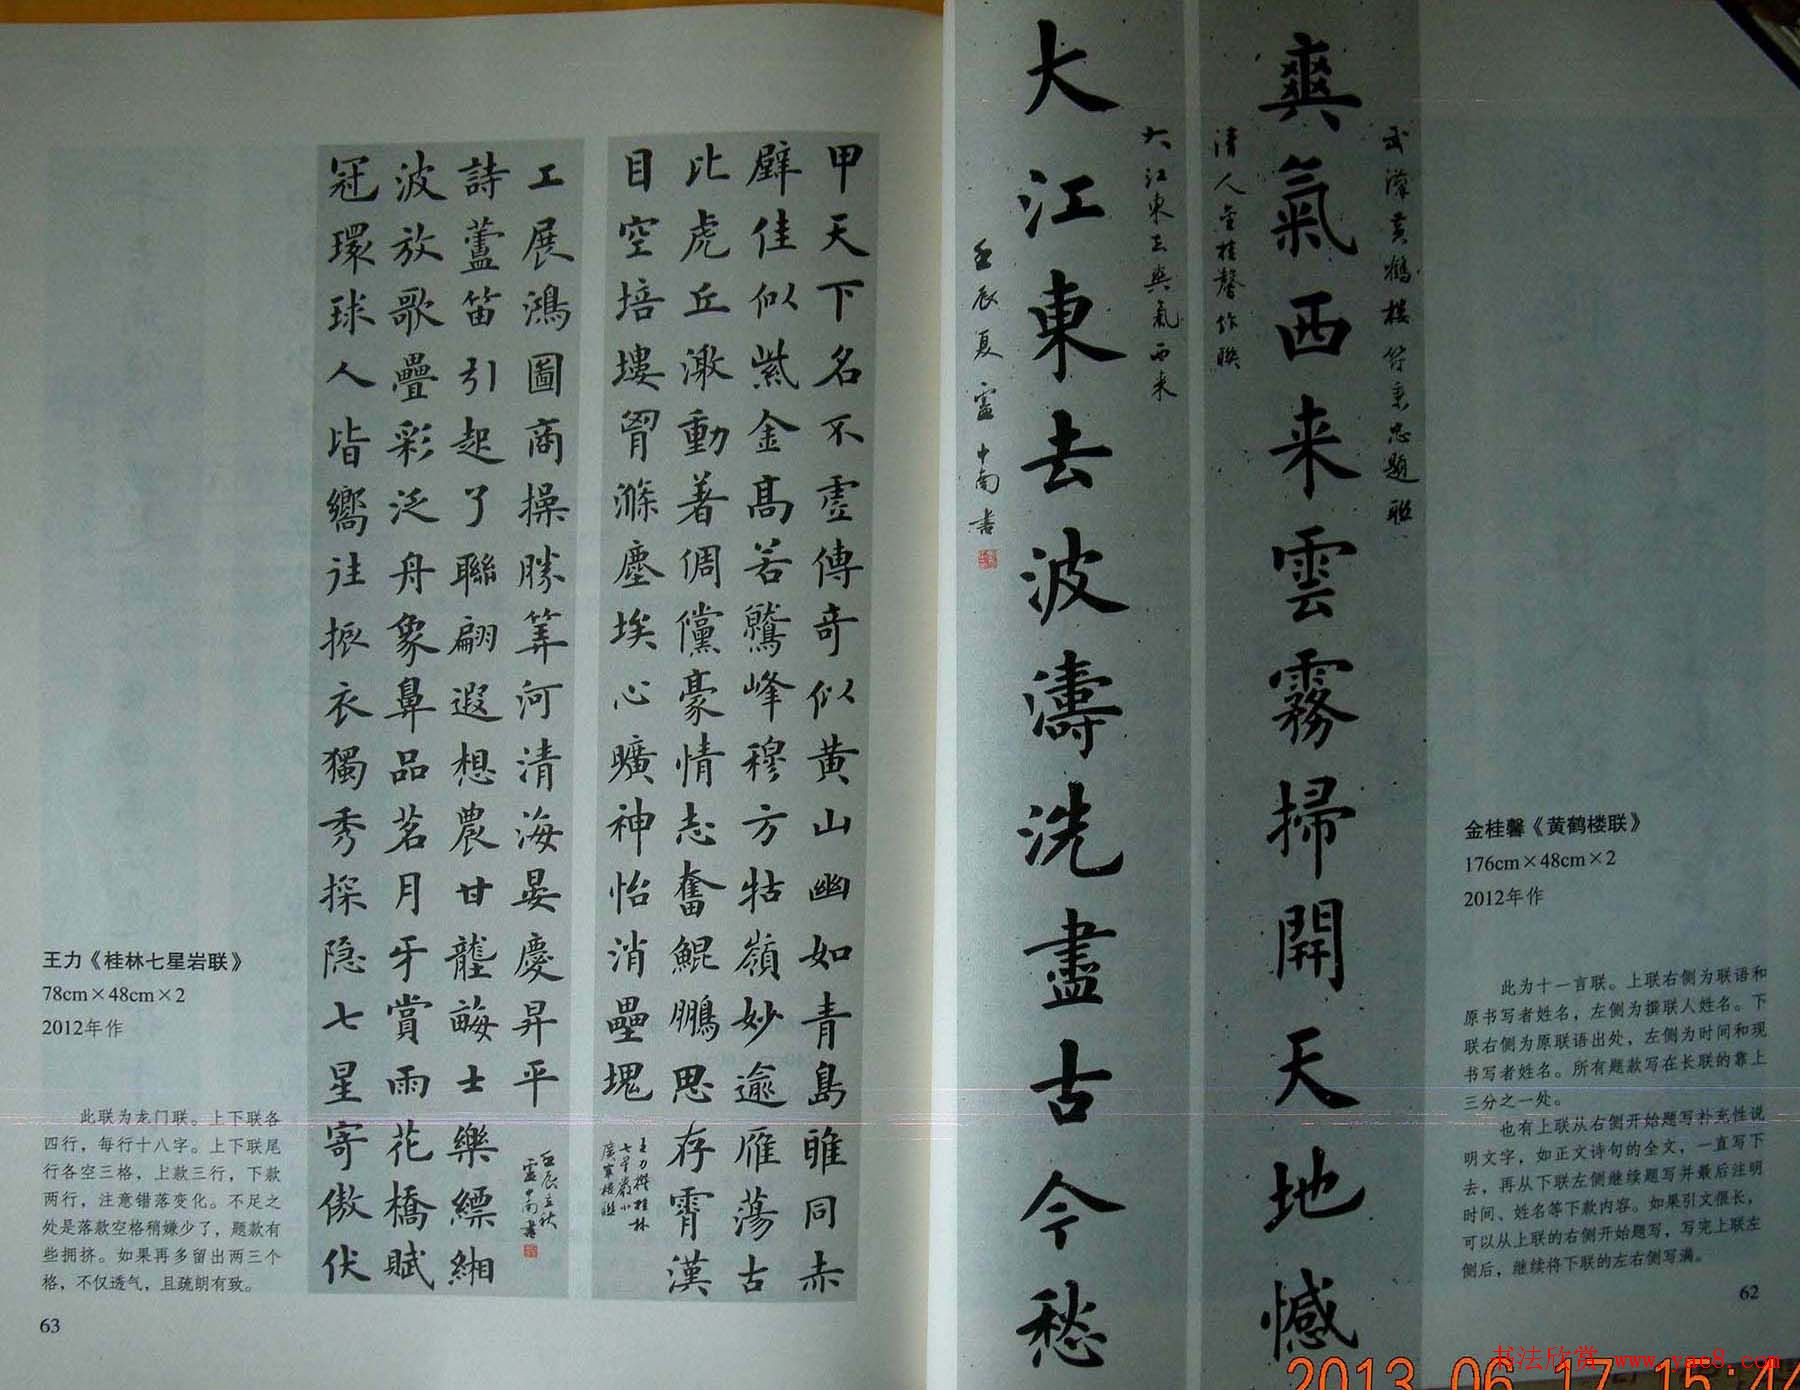 武漢黄鶴楼符秉忠題联
爽氣西来雲霧掃開天地憾
清人金桂馨作联
大江東去爽氣西来
大江東去波濤洗盡古今愁
壬辰夏盧中南書
金桂馨《黄鹤楼联》
176cm×48cm×2
2012年作
此为十一言联。上联右侧为联语和
原书写者姓名，左侧为撰联人姓名。下
联右侧为原联语出处，左侧为时间和现
书写者姓名。所有题款写在长联的靠上
三分之一处。
也有上联从右侧开始题写补充性说
明文字，如正文诗句的全文，一直写下
去，再从下联左侧继续题写并最后注明
时间、姓名等下款内容。如果引文很长，
可以从上联的右侧开始题写，写完上联左
侧后，继续将下联的左右侧写满。
62
甲天下名不虛傳奇似黄山幽如青島雅同赤
壁佳似紫金高若鷲峰穆方牯嶺妙逾雁蕩古
比虎丘激動著倜儻豪情志奮鯤鵬思存霄漢
目空培塿胷滌塵埃心曠神怡消壘塊
王力撰桂林
七星巖小
廣寒樓联
冠環球人皆嚮往振衣獨秀探隐七星寄傲伏
波放歌疊彩泛舟象鼻品茗月牙賞雨花橋賦
詩蘆笛引起了聯翩遐想農甘壟畝士樂縹緗
工展鴻圖商操勝筭河清海晏慶昇平
壬辰立秋
盧中南書
王力《桂林七星岩联》
78cm×48cm×2
2012年作
此联为龙门联。上下联各
四行，每行十八字。上下联尾
行各空三格，上款三行，下款
两行，注意错落变化。不足之
处是落款空格稍嫌少了，题款有
些拥挤。如果再多留出两三个
格，不仅透气，且疏朗有致。
63
书法欣赏 www.yac8.com
2013 06 17 15:44